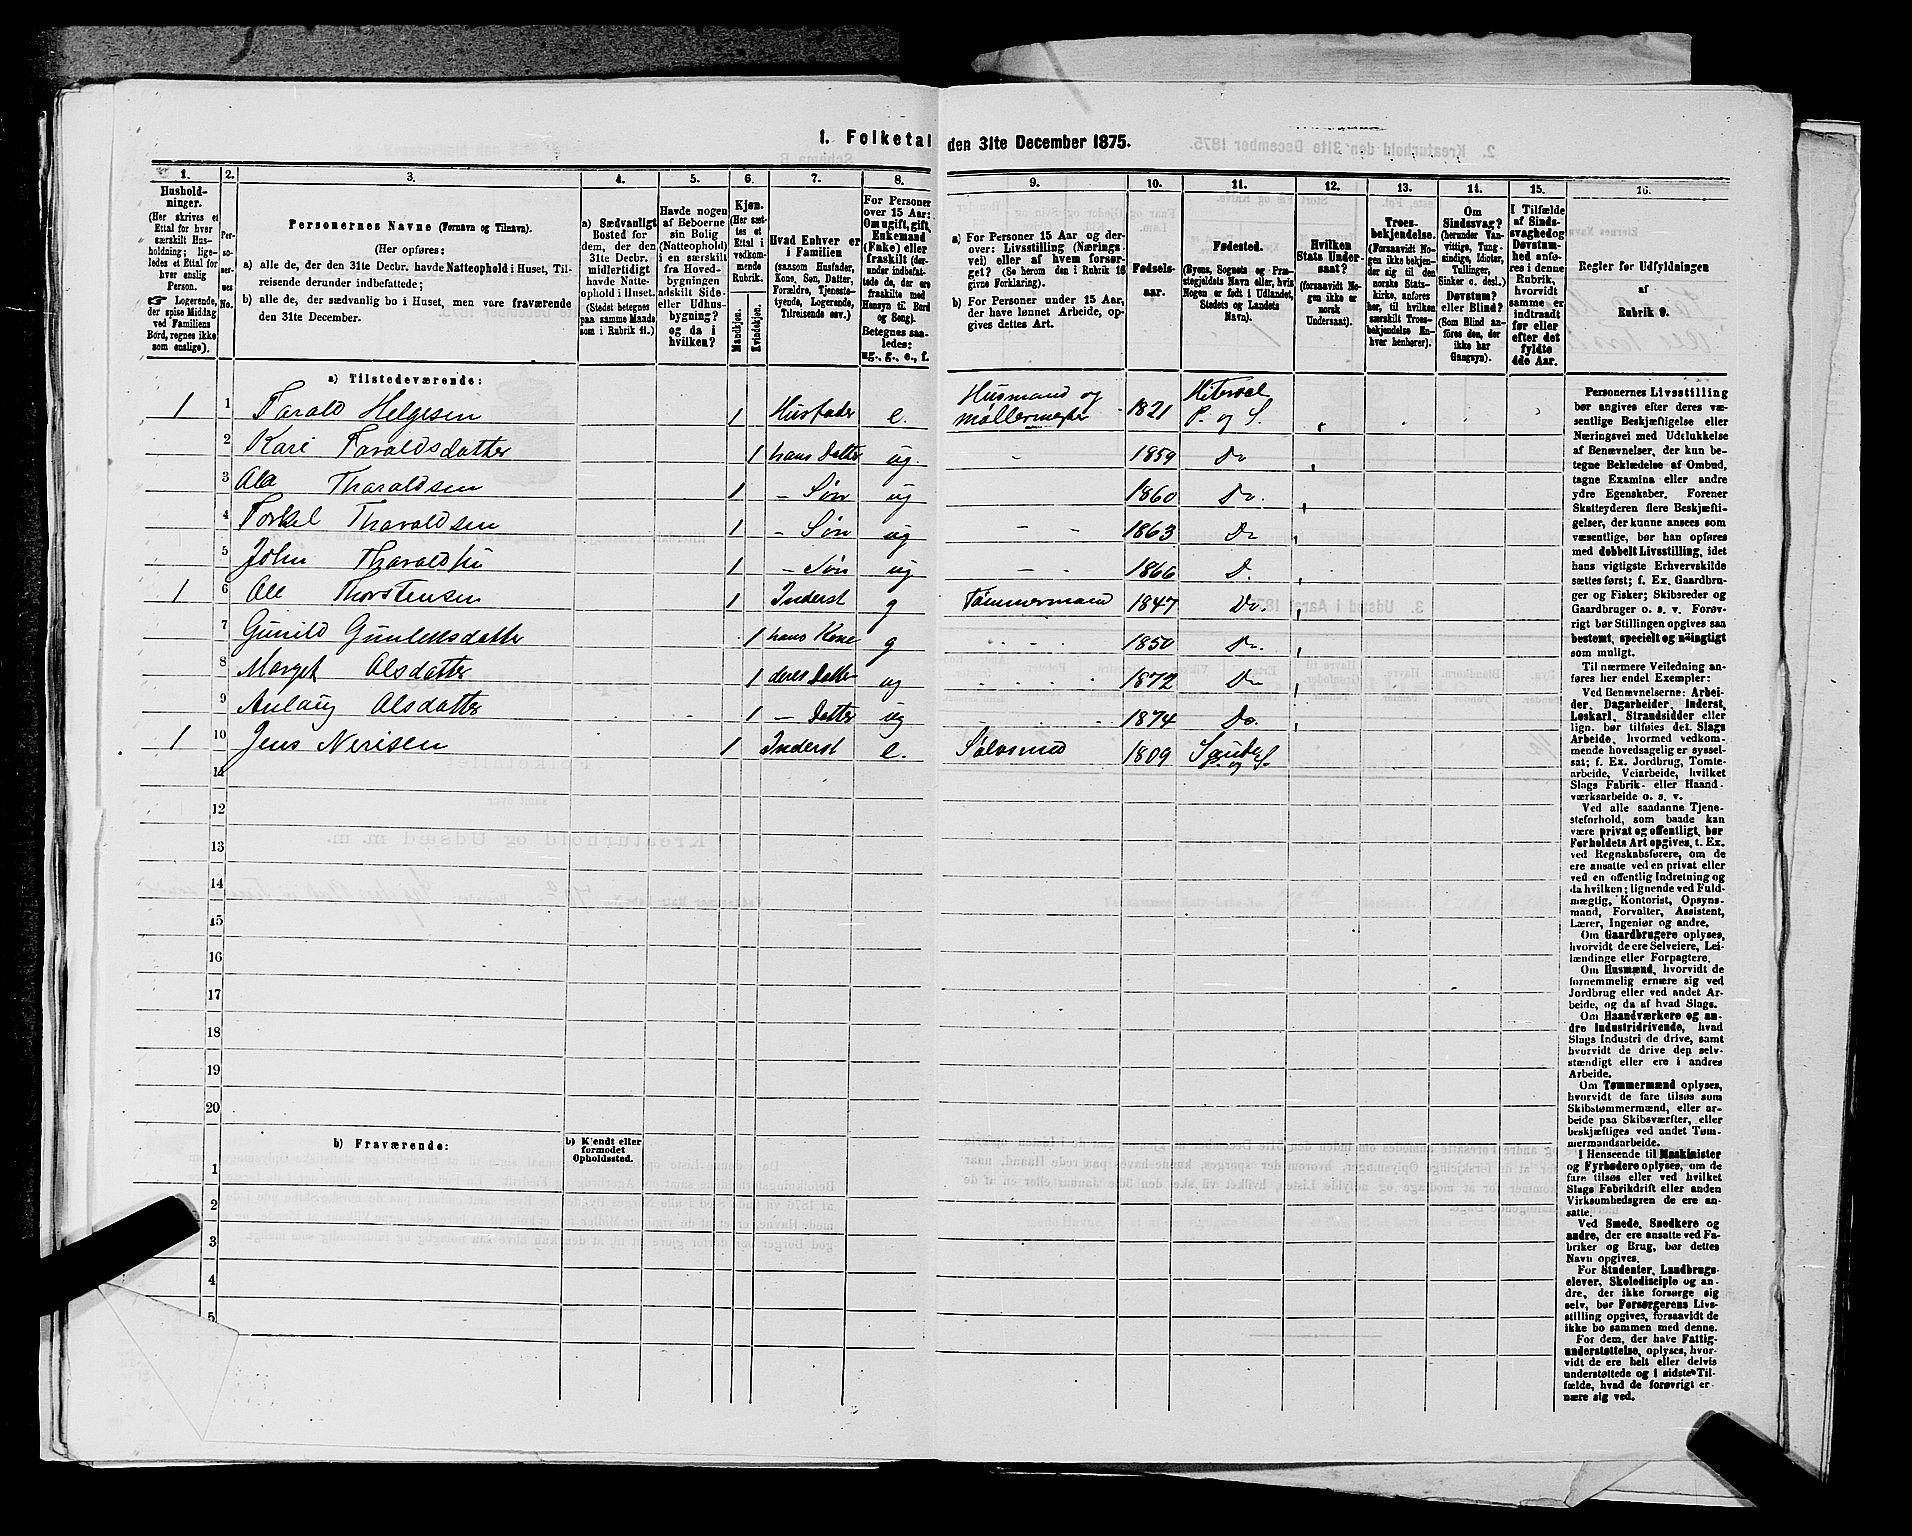 1. Folketal den 31te December 1875.
1.
Hushold-
ninger.
(Her skrives et
Ettal for hver
særskilt Hus-
holdning; lige-
ledes et Ettal for
hver enslig
Person.
☞ Logerende,
der spise Middag
ved Familiens
Bord, regnes ikke
som enslige).
2.
Per-
so-
ner-
nes
No.
3.
Personernes Navne (Fornavn og Tilnavn).
(Her opføres:
a) alle de, der den 31te Decbr. havde Natteophold i Huset, Til-
reisende derunder indbefattede;
b) alle de, der sædvanlig bo i Huset, men vare fraværende
den 31te December.
4.
a) Sædvanligt
Bosted for
dem, der den
31te Decbr.
midlertidigt
havde Natte-
ophold i Huset.
(Stedet betegnes
paa samme Maade
som i Rubrik 11.)
5.
Havde nogen
af Beboerne
sin Bolig
(Natteophold)
i en særskilt
fra Hoved-
bygningen
adskilt Side-
eller Udhus-
bygning?
og da i
hvilken?
6.
Kjøn.
(Her sæt-
tes et
Ettal i
vedkom-
mende
Rubrik.
Mandkjøn.
Kvindekjøn.
7.
Hvad Enhver er
i Familien
(saasom Husfader,
Kone, Søn, Datter,
Forældre, Tjeneste-
tyende, Logerende,
Tilreisende osv.)
8.
For Personer
over 15 Aar:
Om ugift, gift,
Enkemand
(Enke) eller
fraskilt (der-
under indbefat-
tede de, der ere
fraskilte med
Hensyn til Bord
og Seng).
Betegnes saa-
ledes:
ug., g., e., f.
9.
a) For Personer 15 Aar og der-
over: Livsstilling (Nærings-
vei) eller af hvem forsør-
get? (Se herom den i Rubrik 16
givne Forklaring).
b) For Personer under 15 Aar,
der have lønnet Arbeide, op-
gives dettes Art.
10.
Fødsels-
aar.
11.
Fødested.
(Byens, Sognets og Præ-
stegjeldets Navn eller, hvis
Nogen er født i Udlandet,
Stedets og Landets
Navn).
12.
Hvilken
Stats Under-
saat?
(forsaavidt No-
gen ikke er
norsk
Undersaat).
13.
Troes-
bekjendelse.
(Forsaavidt No-
gen ikke bekjen-
der sig til den
norske Stats-
kirke, anføres
her, til hvilken
særskilt Troes-
bekjendelse En-
hver henhører).
14.
Om
Sindssvag?
(herunder Van-
vittige, Tung-
sindige, Idioter,
Tullinger,
Sinker o. desl.)
Døvstum?
eller Blind?
(Som Blind an-
føres den, der
ikke har
Gangsyn).
15.
I Tilfælde
af Sinds-
svaghed og
Døvstum-
hed anfø-
res i denne
Rubrik,
hvorvidt
samme er
indtraadt
før eller
efter det
fyldte
4de Aar.
16.
Regler for Udfyldningen
af
Rubrik 9.
a) Tilstedeværende:
1 1 Tarald Helgesen 1 Husfader e. Husmand og møllermester 1821 Hitterdal P. og S.
2 Kari Taraldsdatter 1 hans Datter ug. - 1859 Do
3 Ole Tharaldsen 1 - Søn ug - 1860 Do.
4 Torkel Tharaldsen 1 - Søn ug - - 1863 Do
5 John Tharaldsen 1 - Søn ug - - 1866 D.
1 6 Ole Thorstensen 1 Inderst g Tømmermand 1847 Do.
7 Gunild Gunleksdatter 1 hans Kone g 1850 Do.
8 Marget Olsdatter 1 deres Datter ug 1872 Do
9 Anlaug Olsdatter 1 - Datter ug 1874 Do.
1 10 Jens Nerisen 1 Inderst e. Sølvsmed 1809 Sauda P. og S.
11
12
13
14
15
16
17
18
19
20
b) Fraværende:
b) Kjendt eller
formodet
Opholdssted.
1
2
3
4
5
Personernes Livsstilling
bør angives efter deres væ-
sentlige Beskjæftigelse eller
Næringsvei med Udelukkelse
af Benævnelser, der kun be-
tegne Beklædelse af Ombud,
tagne Examina eller andre
ydre Egenskaber. Forener
Skatteyderen flere Beskjæfti-
gelser, der kunne ansees som
væsentlige, bør han opføres
med dobbelt Livsstilling, idet
hans vigtigste Erhvervskilde
sættes først; f. Ex. Gaardbru-
ger og Fisker; Skibsreder og
Gaardbruger o. s. v. Forøv-
rigt bør Stillingen opgives saa
bestemt, specielt og nøiagtigt
som muligt.
Til nærmere Veiledning an-
føres her endel Exempler:
Ved Benævnelserne: Arbei-
der, Dagarbeider, Inderst,
Løskarl, Strandsidder eller
lign. bør tilføies det Slags
Arbeide, hvormed vedkom-
mende hovedsagelig er syssel-
sat; f. Ex. Jordbrug, Tomte-
arbeide, Veiarbeide, hvilket
Slags Fabrik- eller Haand-
værksarbeide o. s. v.
Ved alle saadanne Tjene-
steforhold, som baade kan
være privat og offentligt, bør
Forholdets Art opgives, t. Ex.
ved Regnskabsførere, om de
ere ansatte ved en privat eller
ved en offentlig Indretning og
da hvilken; lignende ved Fuld-
mægtig, Kontorist, Opsyns-
mand, Forvalter, Assistent,
Lærer, Ingeniør og andre.
Om Gaardbrugere oplyses,
hvorvidt de ere Selveiere, Lei-
lændinge eller Forpagtere.
Om Husmænd, hvorvidt de
fornemmelig ernære sig ved
Jordbrug eller ved andet Ar-
beide, og da af hvad Slags.
Om Haandværkere og an-
dre Industridrivende, hvad
Slags Industri de drive, samt
hvorvidt de drive den selv-
stændigt eller ere i andres
Arbeide.
Om Tømmermænd oplyses,
hvorvidt de fare tilsøs som
Skibstømmermænd, eller ar-
beide paa Skibsværfter, eller
beskjæftiges ved andet Tøm-
mermandsarbeide.
I Henseende til Maskinister
og Fyrbødere oplyses, om de
fare tilsøs eller ved hvilket
Slags Fabrikdrift eller anden
Virksomhedsgren de ere an-
satte.
Ved Smede, Snedkere og
andre, der ere ansatte ved Fa-
briker og Brug, bør dettes
Navn opgives.
For Studenter, Landbrugs-
elever, Skoledisciple og an-
dre, der ikke forsørge sig
selv, bør Forsørgerens Livs-
stilling opgives, forsaavidt de
ikke bo sammen med denne.
For dem, der have Fattig-
understøttelse, oplyses, hvor-
vidt de ere helt eller delvis
understøttede og i sidste Til-
fælde, hvad de forøvrigt er-
nære sig ved.